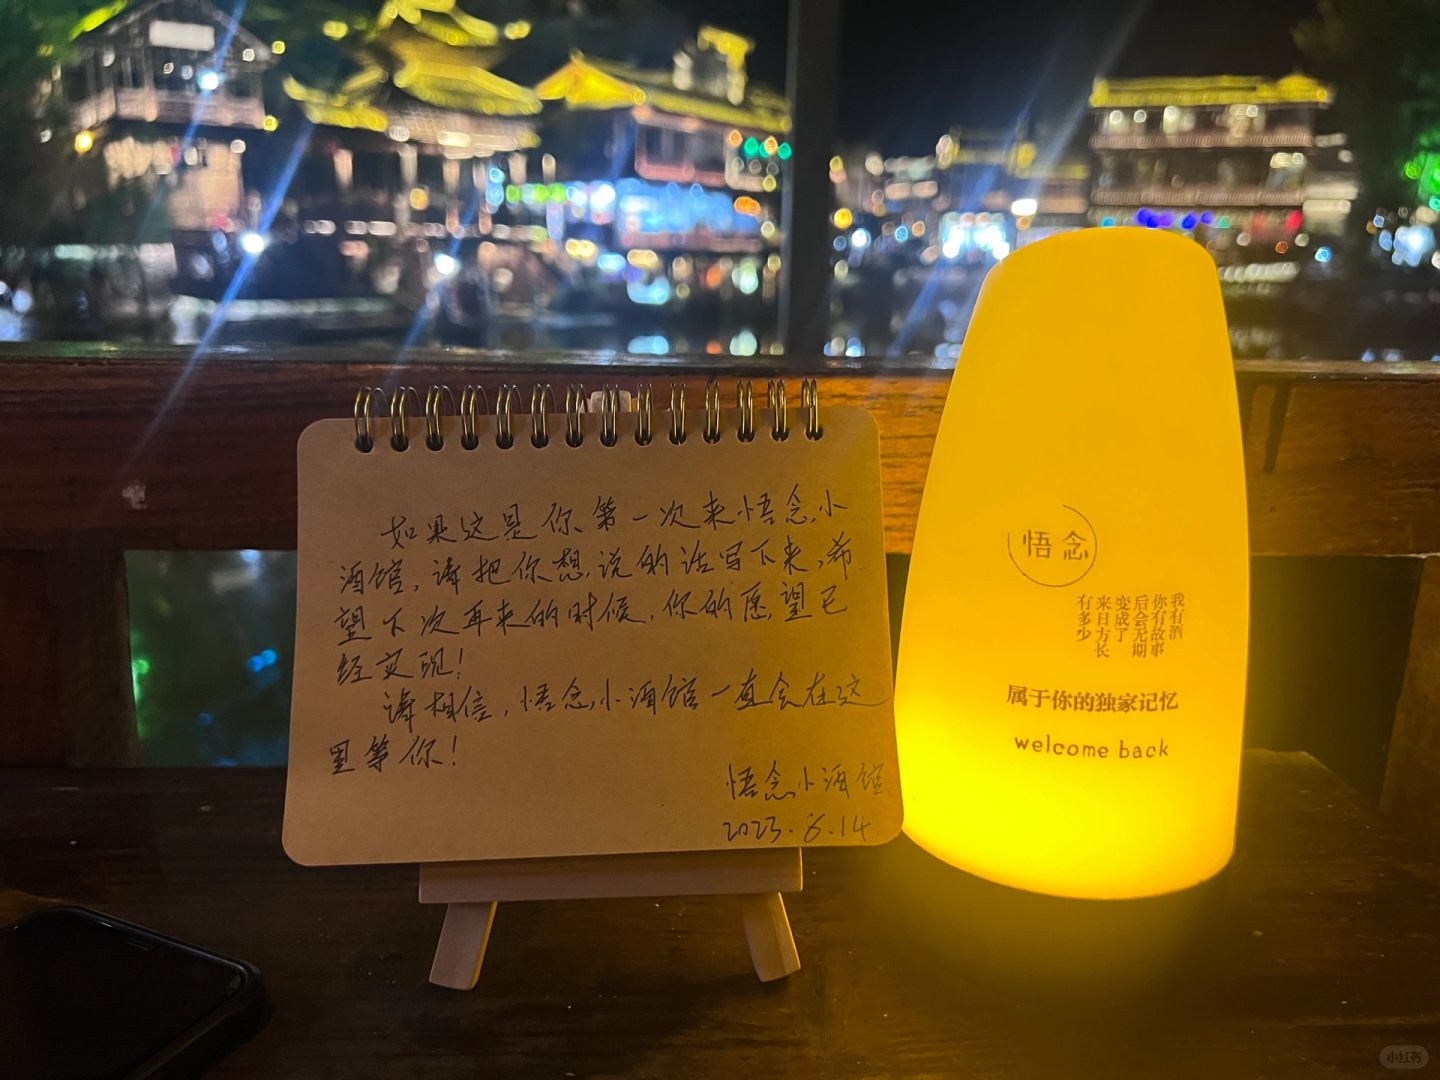 如果这是你第一次来悟念小
酒馆，请把你想说的话写下来，希
望下次再来的时候，你的愿望已
经实现！
请相信，悟念小酒馆一直会在这
里等你！
悟念小酒馆
2023.6.14
悟念
我有酒
你有故事
后会无期
变成了
来日方长
有多少
属于你的独家记忆
welcome back
小红书